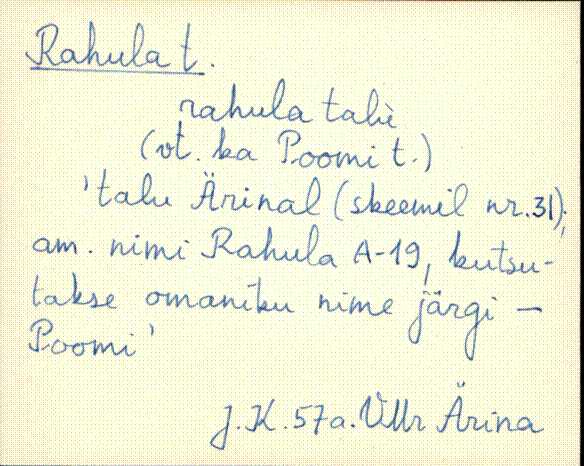 Rahula t.
rahula talù
(vt. ka Poomi t.)
'talu Ärinal (skeemil nr. 31);
am. nimi Rahula A-19, kutsu-
takse omaniku nime järgi —
Poomi'
J.K. 57a. VMr Ärina